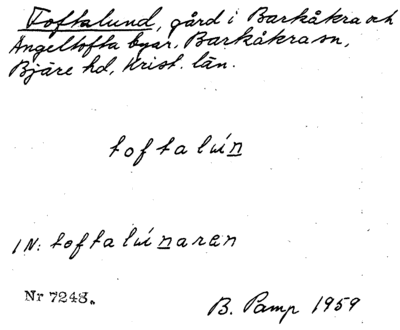 Toftalund, gård i Barkåkra och
Ängeltofta byar, Barkåkra sn,
Bjäre hd, Krist. län.
toftalún
IN: toftalúnaren
Nr 7248.
B. Pamp 1959